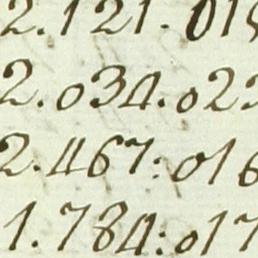 2.121.015
2.034.022
2.467:016
1.784:017